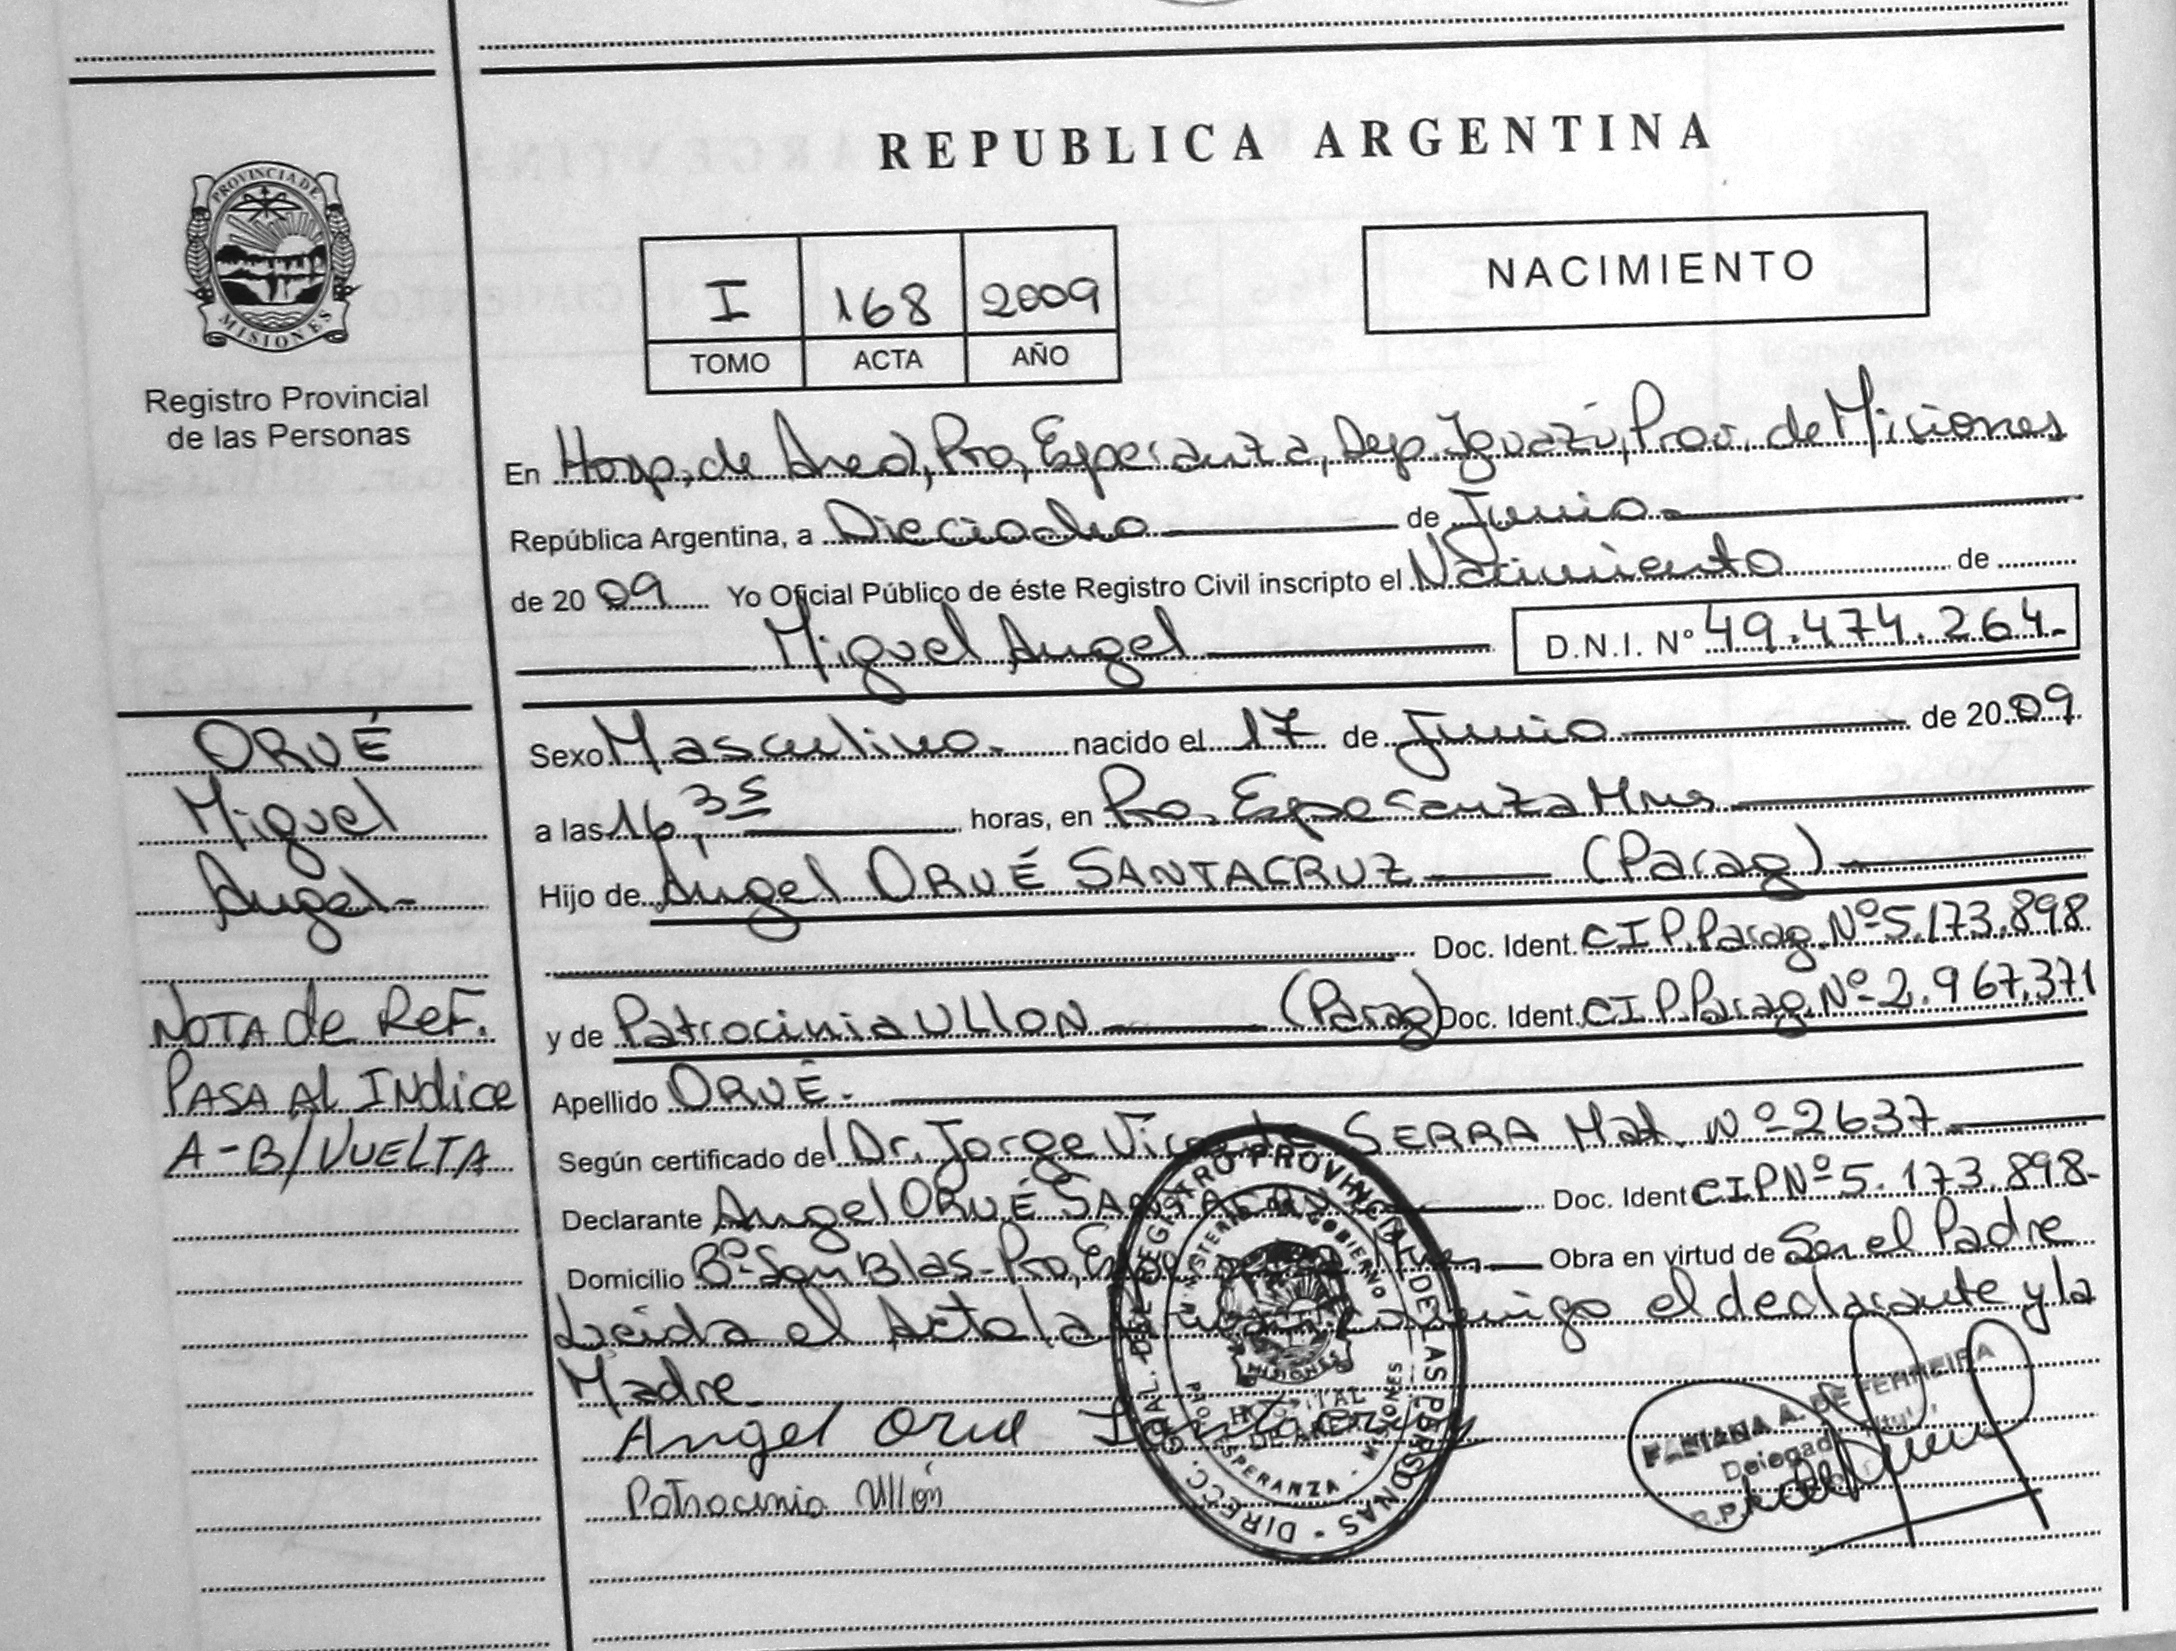 PROVINCIA DE
MISIONES
Registro Provincial
de las Personas
ORUÉ
Miguel
Angel-
NOTA de REF.
PASA Al INdice
A-B/VUELTA
REPUBLICA ARGENTINA
I 168 2009
TOMO ACTA AÑO
NACIMIENTO
En Hosp, de Area, Pto, Esperanza, Dep. Iguazú, Prov. de Misiones
República Argentina, a Dieciocho de Junio.
de 2009 Yo Oficial Público de éste Registro Civil inscripto el Nacimiento de
Miguel Angel D.N.I. Nº 49.474.264.-
Sexo Masculino. nacido el 17 de Junio de 2009
a las 16,35 horas, en Pto. Esperanza Mnes
Hijo de Angel ORUÉ SANTACRUZ (Parag)
Doc. Ident. CIP. Parag. Nº 5.173.898
y de Patrocinia ULLON (Parag) Doc. Ident. CIP. Parag. Nº 2.967.371
Apellido ORUÉ.
Según certificado del Dr. Jorge Vicente SERRA Mat. Nº 2637
Declarante Angel ORUÉ SANTACRUZ Doc. Ident CIP Nº 5.173.898-
Domicilio Bº San Blas- Pto, Esperanza Mnes Obra en virtud de Ser el Padre
Leida el Acta la firman conmigo el declarante y la
Madre
Angel Orue Santacruz
Patrocinia Ullón
DIRECC. GRAL. DEL REGISTRO PROVINCIAL DE LAS PERSONAS
MINISTERIO DE GOBIERNO
MISIONES
HOSPITAL
DE AREA
PTO. ESPERANZA - MISIONES
FABIANA A. DE FERREIRA
Delegada Titular